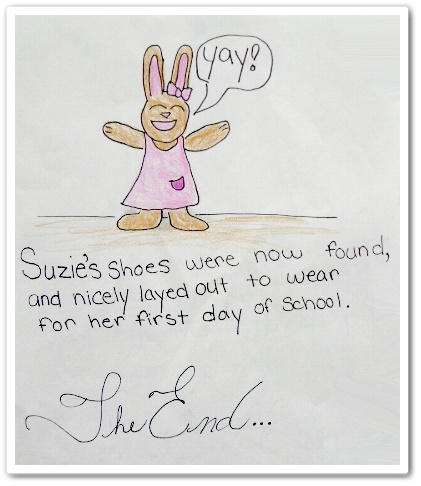 yay!
Suzie's shoes were now found,
and nicely layed out to wear
for her first day of School.
The End...